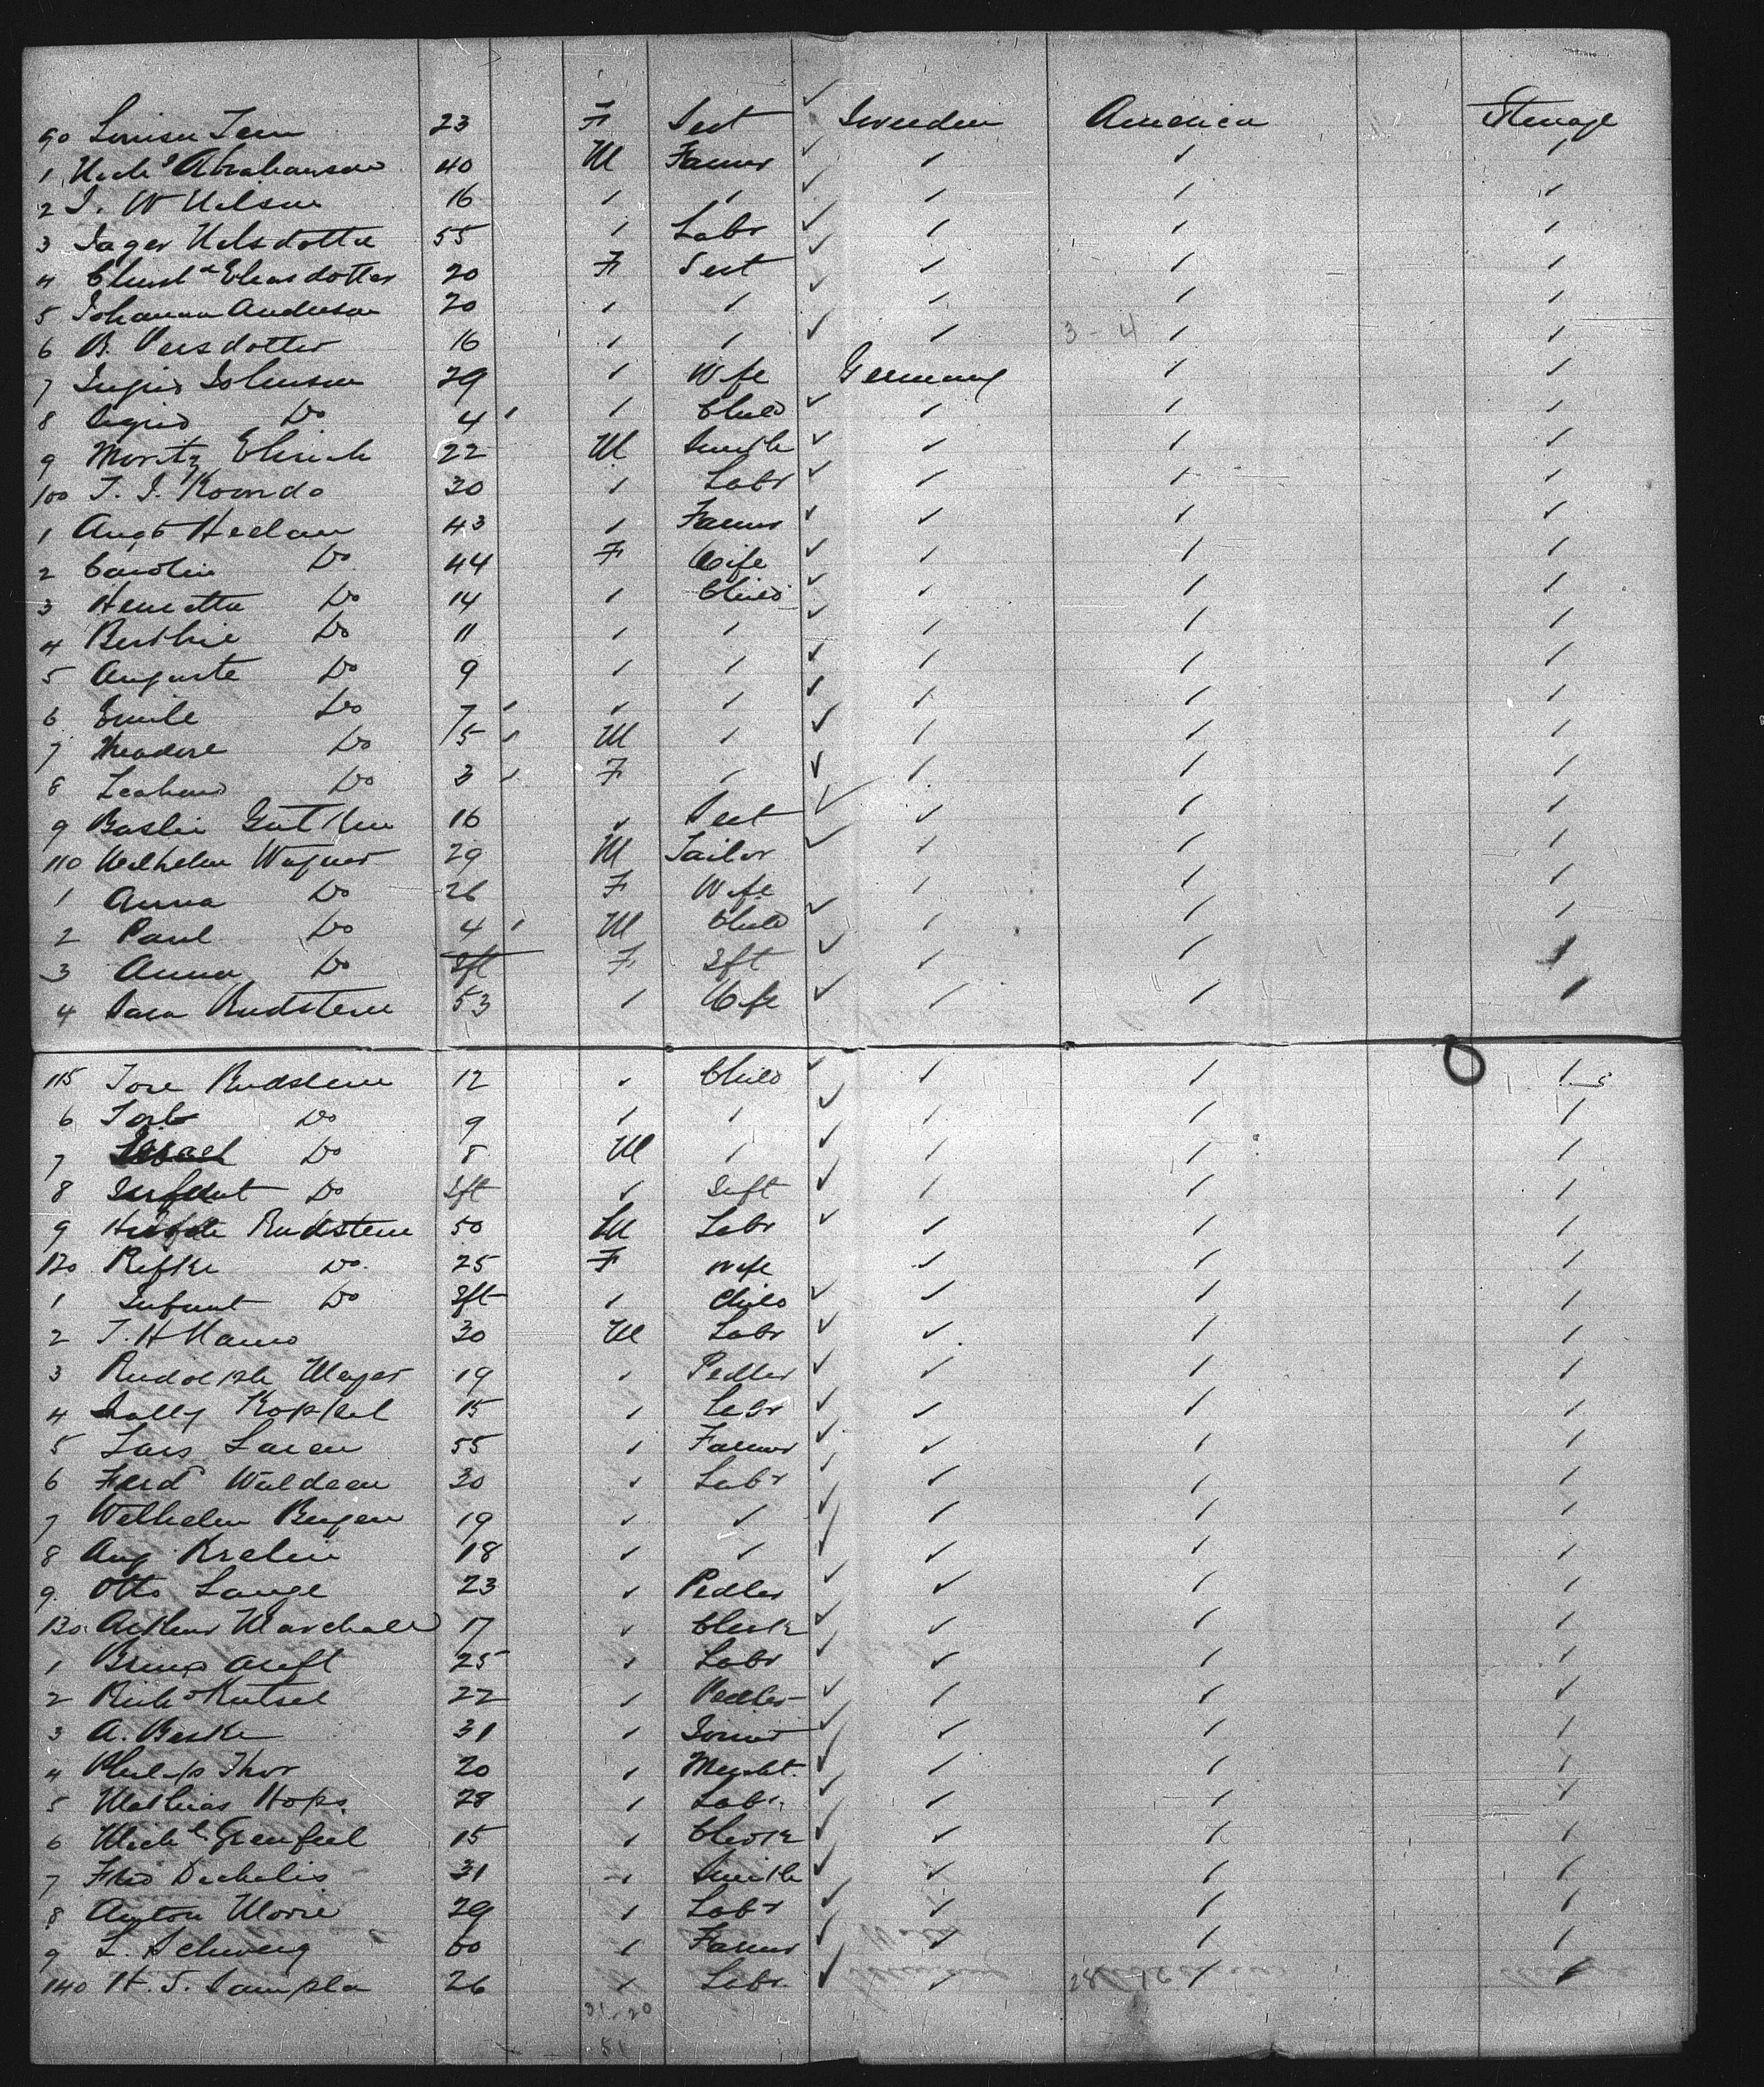 90 Louisa Tern 23 F Sert ✓ Sweden America Steerage
1 Nichs Abrahamson 40 M Farmer ✓ " " "
2 J. W Nilson 16 " " ✓ " " "
3 Inger Nelsdotter 55 " Labr ✓ " " "
4 Christa Eliasdotter 20 F Sert ✓ " " "
5 Johanna Anderson 20 " " ✓ " " "
6 B. Persdotter 16 " " ✓ " 3-4 " "
7 Ingrid Johnson 29 " Wife Germany " "
8 Sigrid Do 4 " " Child ✓ " " "
9 Moritz Ehrich 22 M Smith ✓ " " "
100 T. J. 30 " Labr ✓ " " "
1 Augt Heelan 43 " Farmer ✓ " " "
2 Carolin Do 44 F Wife ✓ " " "
3 Henretta Do 14 " Child ✓ " " "
4 Berthie Do 11 " " ✓ " " "
5 Auguste Do 9 " " ✓ " " "
6 Emile Do 7 " " " ✓ " " "
7 Theadore Do 5 " M " ✓ " " "
8 Do 3 " F " ✓ " " "
9 16 " Sert ✓ " " "
110 Wilhelm Wagner 29 M Tailor ✓ " " "
1 Anna Do 26 F Wife " " "
2 Paul Do 4 " M Child ✓ " " "
3 Anna Do Ift F Ift ✓ " " "
4 Sara Rudstein 53 " Wife ✓ " " "
115 Tore Rudstein 12 " Child ✓ " " "
6 Do 9 " " ✓ " " "
7 Israel Do 8 M " ✓ " " "
8 Infant Do Ift " Inft ✓ " " "
9 Rudstein 50 M Labr ✓ " " "
120 Rifke Do 25 F Wife " " "
1 Infant Do Ift " Child ✓ " " "
2 T. H 30 M Labr ✓ " " "
3 Rudolph Meyer 19 " Pedler ✓ " " "
4 Sally Koppel 15 " Labr ✓ " " "
5 Lars Laren 55 " Farmer ✓ " " "
6 Ferd Waldean 30 " Labr ✓ " " "
7 Wilhelm Bergen 19 " " ✓ " " "
8 Aug Krelin 18 " " ✓ " " "
9 Otto Lange 23 " Pedler ✓ " " "
130 Arthur Marchall 17 " Clerk ✓ " " "
1 Bruno 25 " Labr ✓ " " "
2 Richd 22 " Pedler ✓ " " "
3 A. Beske 31 " Joiner ✓ " " "
4 Philip Thor 20 " Mercht. ✓ " " "
5 Mathias Hops 28 " Labr. ✓ " " "
6 Michl Grenfeel 15 " Clerk ✓ " " "
7 Fred Dechelis 31 " Smith ✓ " " "
8 Anton Morre 29 " Labr ✓ " " "
9 L. Schweig 60 " Farmer ✓ " " "
140 H. J. Sampla 26 " Labr. ✓ " " "
31-20
51